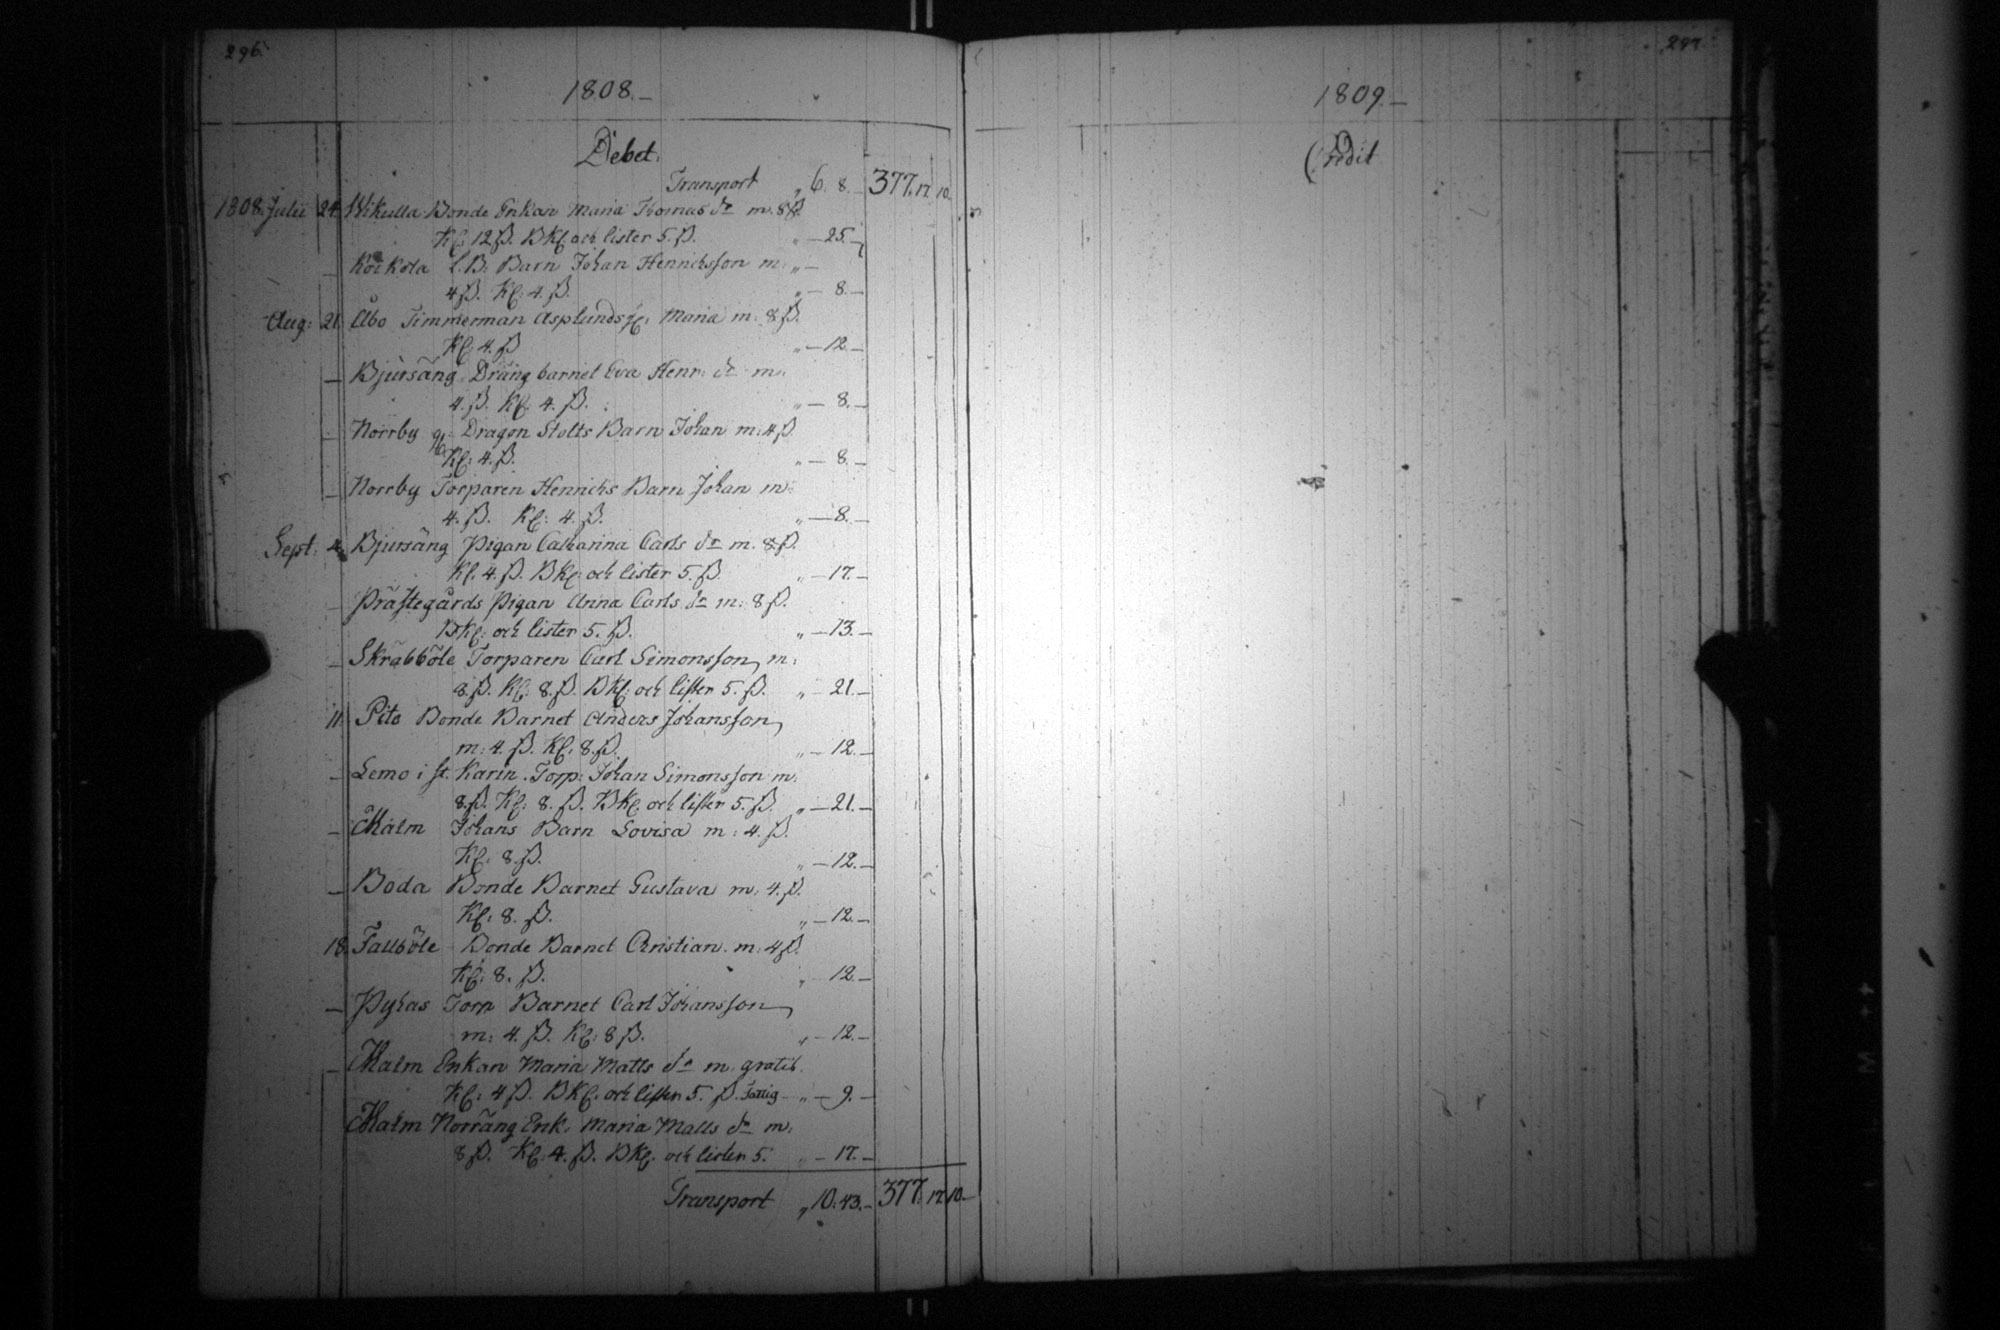 296.
1808.—
Debet.
Transport „ 6. 8.— 377. 17. 10.
1808. Julii 24. Wikulla Bonde Enkan Maria Thomas dr m. 8 ß.
Kl: 12 ß. BKl. och lister 5. ß. „—25.—
— Korkola l. B. Barn Johan Henrichsson m: „—
4 ß. Kl: 4. ß. „—8.—
Aug: 21. Åbo Timmerman Asplunds Maria m: 8 ß.
Kl: 4. ß „—12.—
— Bjursäng Dräng barnet Eva Henr: dr m:
4. ß. Kl. 4. ß. „—8.—
— Norrby Dragon Stolts Barn Johan m: 4 ß
Kl: 4. ß. „—8.—
— Norrby Torparen Henrichs Barn Johan m:
4. ß. Kl: 4. ß. „—8.—
Sept: 4. Bjursäng Pigan Catharina Carls dr m. 8 ß.
Kl. 4. ß. BKl: och lister 5. ß „—17.—
— Prästegårds Pigan Anna Carls dr m: 8 ß.
BKl: och lister 5. ß. „—13.—
— Skräbböle Torparen Carl Simonsson m:
8. ß. Kl: 8. ß. BKl: och lister 5. ß. „—21.—
11. Pito Bonde Barnet Anders Johansson
m: 4. ß. Kl: 8. ß. „—12.—
— Lemo i st. Karin. Torp: Johan Simonsson m:
8. ß. Kl: 8. ß. BKl. och lister 5. ß. „—21.—
— Malm Johans Barn Lovisa m: 4. ß.
Kl: 8. ß. „—12.—
— Boda Bonde Barnet Gustava m: 4. ß.
Kl: 8. ß. „—12.—
18. Fallböle Bonde Barnet Christian. m: 4 ß.
Kl: 8. ß. „ 12.—
— Pyhas Torp Barnet Carl Johansson
m: 4. ß. Kl: 8 ß. „—12.—
— Malm Enkan Maria Matts dr m. gratis.
Kl: 4 ß. BKl. och lister 5. ß. Fattig „—9.—
Malm Norräng Enk: Maria Matts dr m:
8 ß. Kl. 4. ß. BKl. och lister 5. „—17.—
Transport „ 10. 43.— 377. 17. 10.—
297.
1809.—
Credit